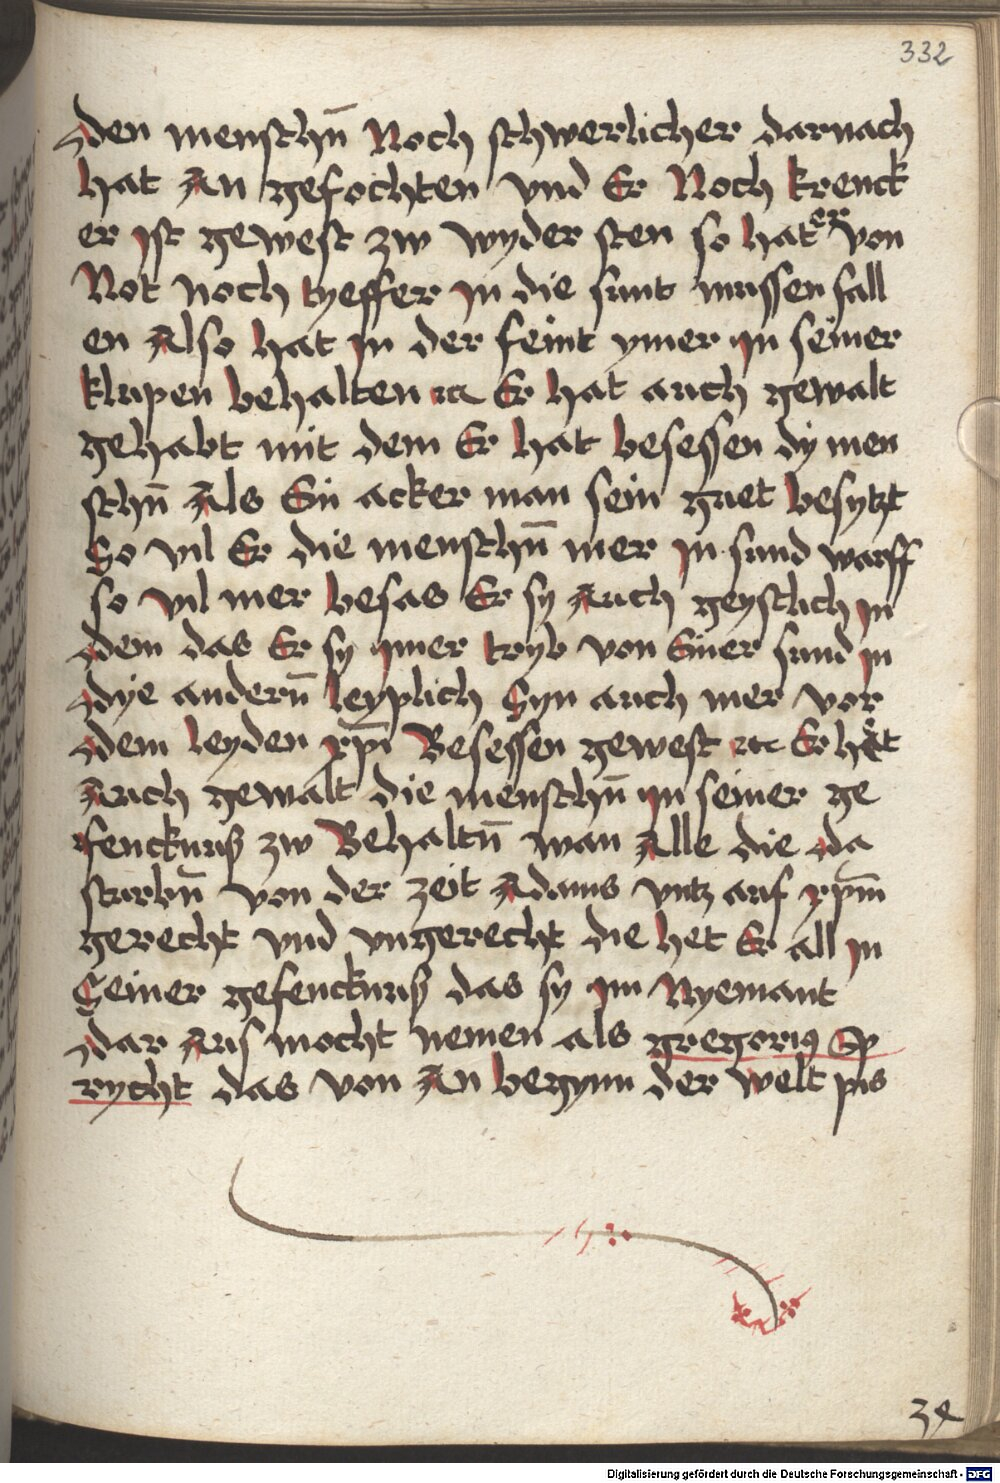 332
den menschñ Noch schwerlicher darnach
hat An gefochten vnd Er Noch krenck
er ist gewest zw wyder sten so hat er von
Not noch tyeffer in die sunt mussen fall
en Also hat in der feint ymer in seiner
klupen behalten ⁊c Er hat auch gewalt
gehabt mit dem Er hat besessen dy men
schñ Als Ein acker man sein guet besytzt
So vil Er die menschñ mer in sund warff
so vil mer besas Er sy Auch geystlich in
dem das Er sy ymer tryb von Einer sund in
dye anderñ leyplich Syn auch mer vor
dem leyden xp̄i Besessen gewest ⁊c Er hät
Auch gewalt die menschñ in seiner ge
fencknuß zw Behaltñ wan Alle die da
sturbñ von der zeit Adams vntz auf xp̄m
gerecht vnd vngerecht die het Er all in
Seiner gefencknuß das sy im Nyemant
dar Aus mocht nemen als gregorius Sp
rycht das von An begynn der welt pis
Digitalisierung gefördert durch die Deutsche Forschungsgemeinschaft - DFG